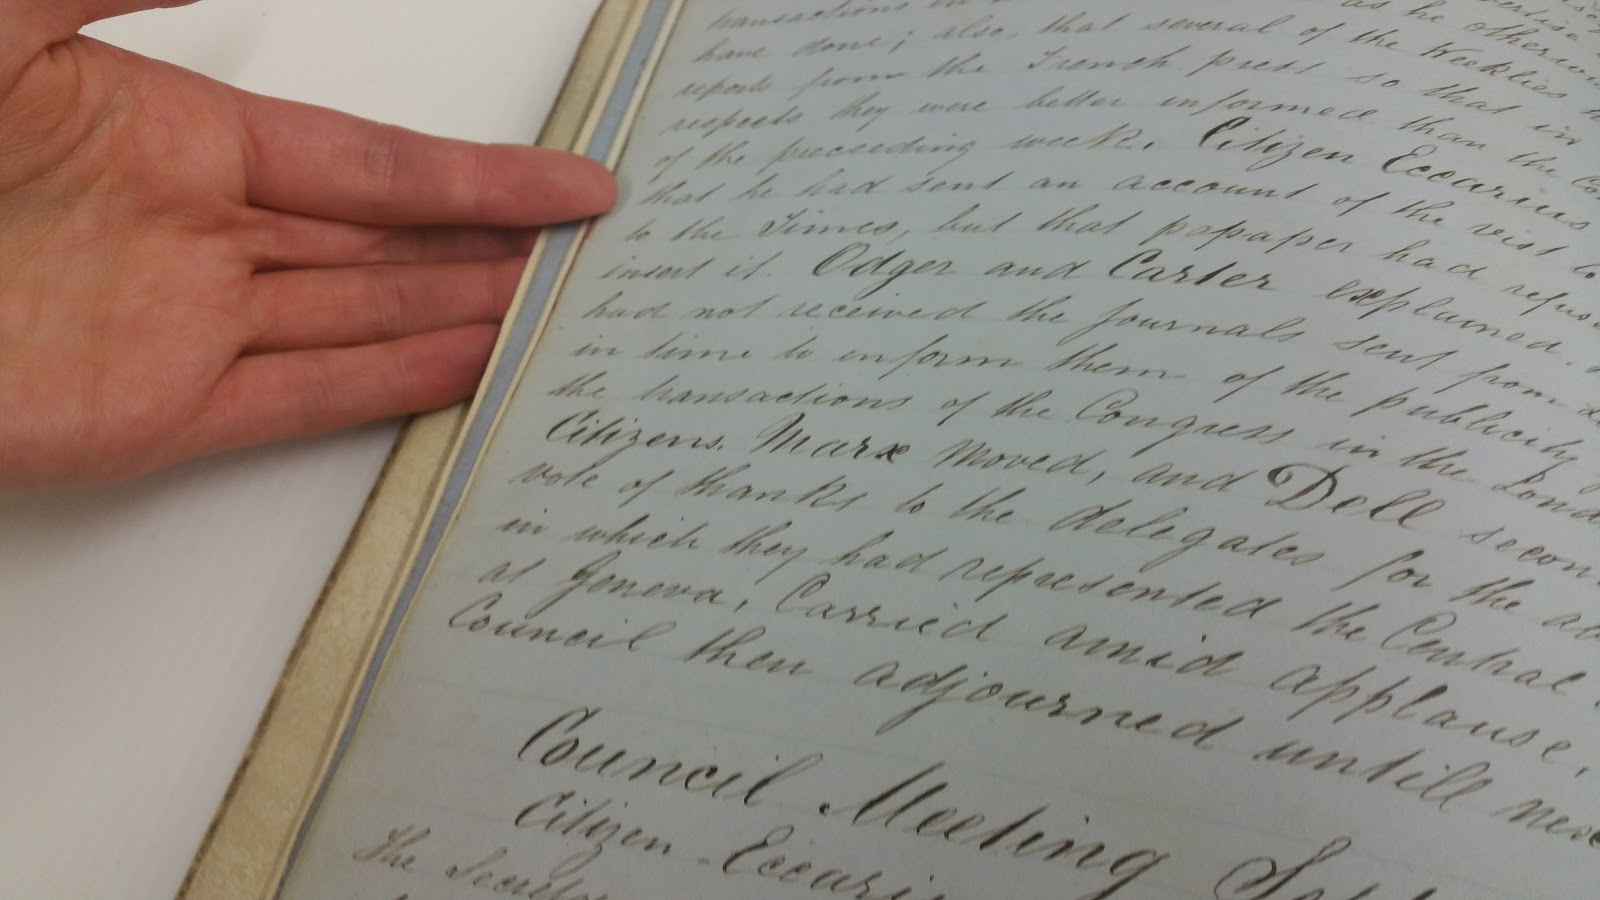 transactions in
have done; also, that several of the Weeklies
reports from the French press so that in
respects they were better informed than the
of the preceeding week. Citizen Eccarius
that he had sent an account of the visit to
to the Times, but that papaper had refused
insert it. Odger and Carter explained.
had not received the journals sent from
in time to inform them of the publicity
the transactions of the Congress in the Lond
Citizens. Marx moved, and Dell secon
vote of thanks to the delegates for the ab
in which they had represented the Central
at Geneva, Carried amid applause.
Council then adjourned untill nex
Council Meeting Sep
Citizen Eccari
The Secreta